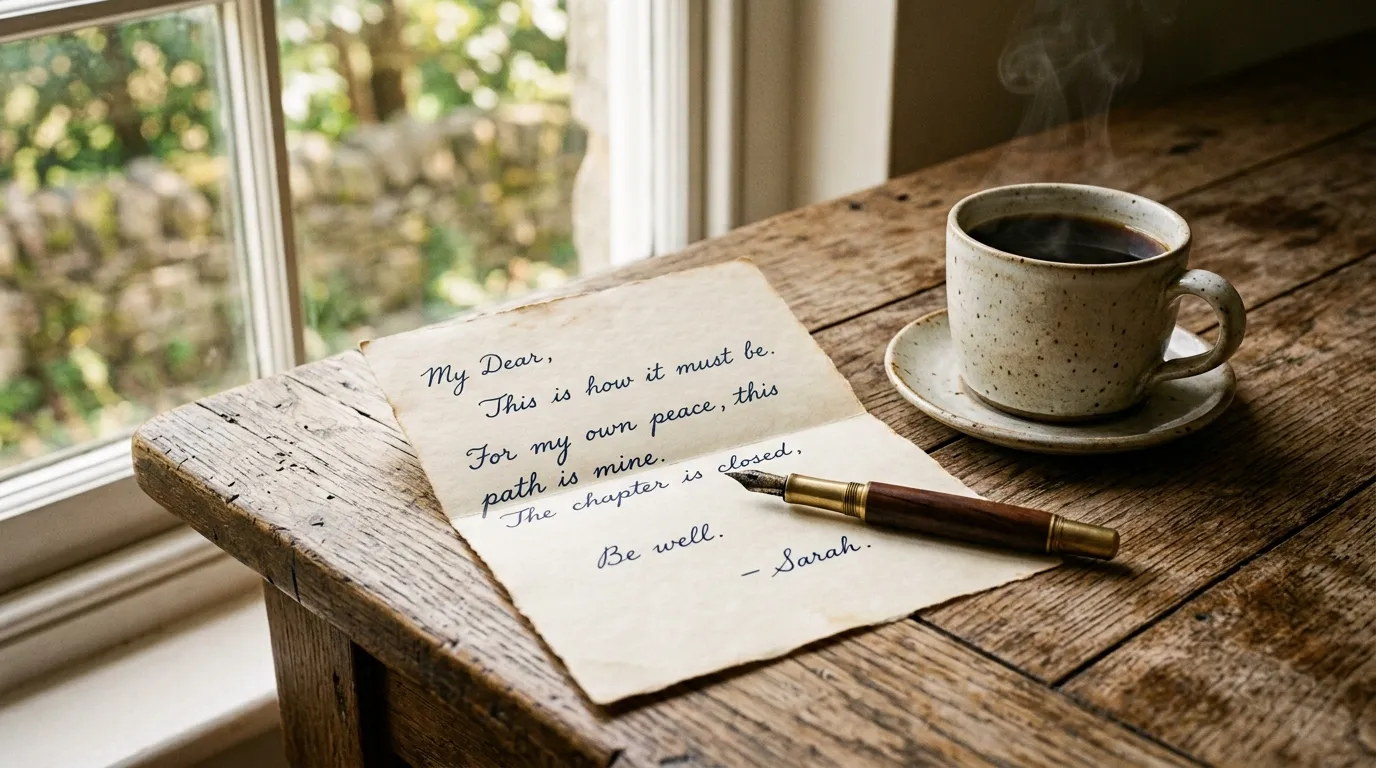 My Dear,
This is how it must be.
For my own peace, this
path is mine.
The chapter is closed,
Be well.
– Sarah.